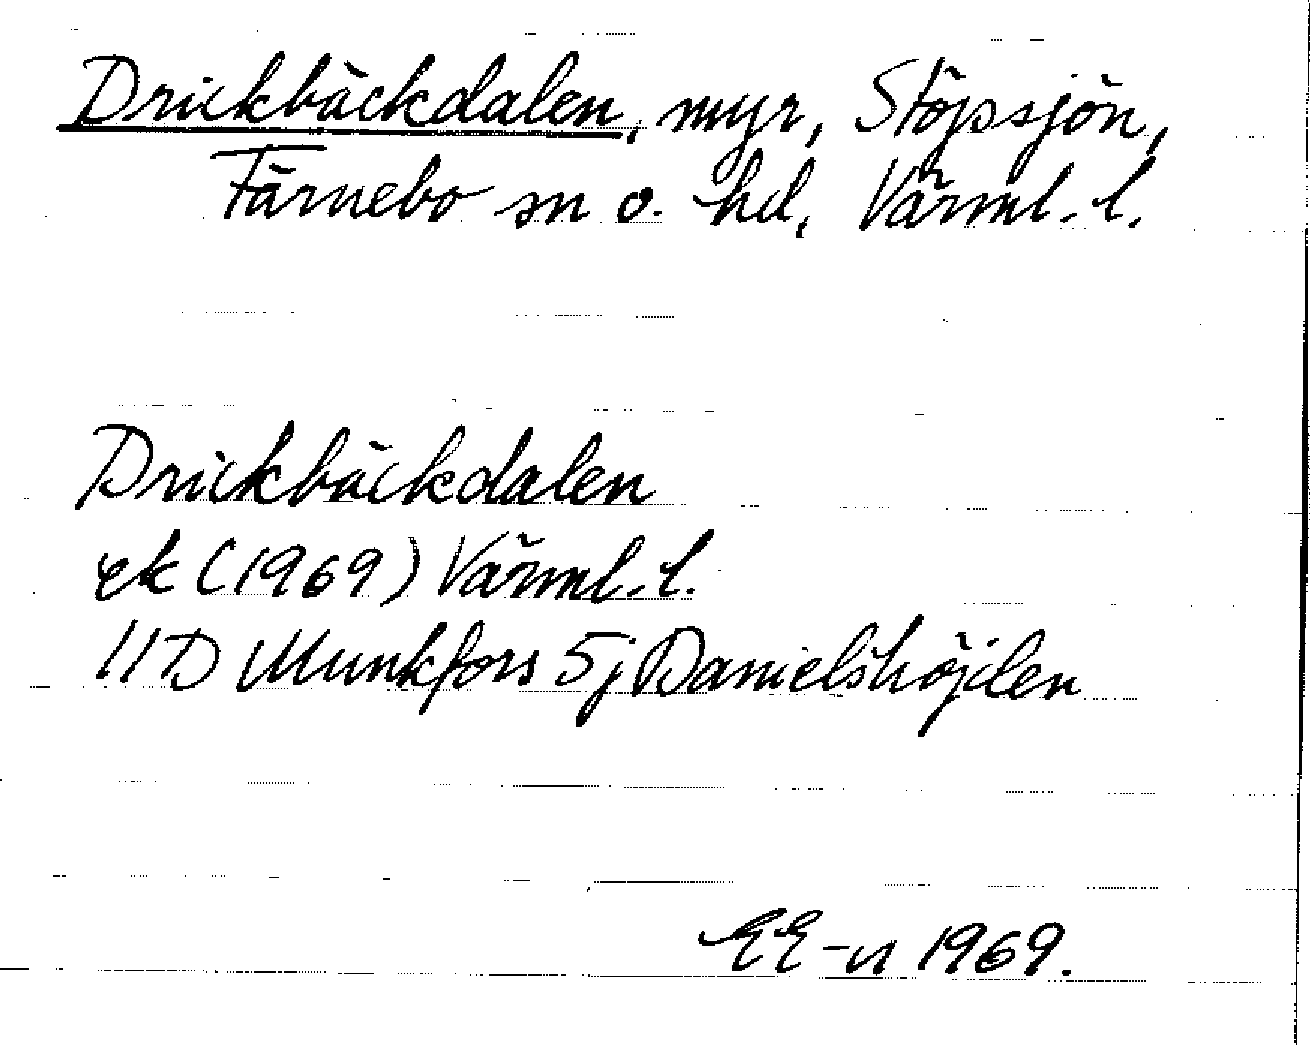 Drickbäckdalen, myr, Stöpsjön,
Färnebo sn o. hd, Värml. l.
Drickbäckdalen
ek (1969) Värml. l.
11D Munkfors 5j Danielshöjden
EE-n 1969.